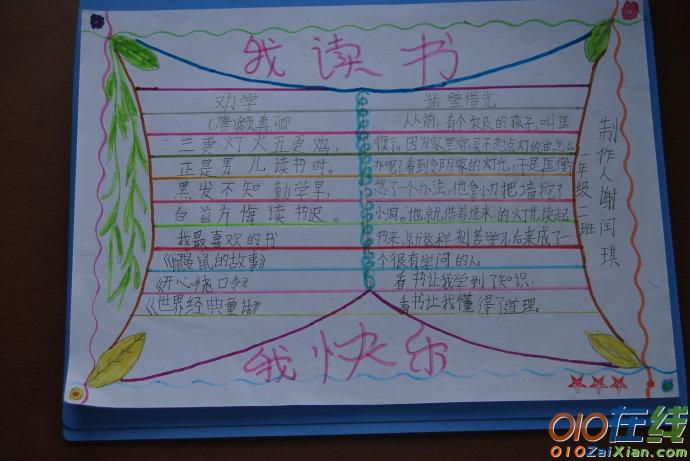 我读书
劝学
(唐)颜真卿
三更灯火五更鸡,
正是男儿读书时。
黑发不知勤学早,
白首方悔读书迟。
我最喜欢的书
《鼹鼠的故事》
《开心绕口令》
《世界经典童话》
凿壁借光
从前,有个农民的孩子,叫匡
衡。因为家里穷买不起点灯的油怎么
办呢?看到邻居家的灯光,于是匡衡
想了一个办法,他拿小刀把墙挖了
小洞。他就借着进来的灯光读起
书来,就这样刻苦学习,后来成了一
个很有学问的人。
看书让我学到了知识,
看书让我懂得了道理。
年级二班
制作人谢闰琪
我快乐
010在线
010ZaiXian.com